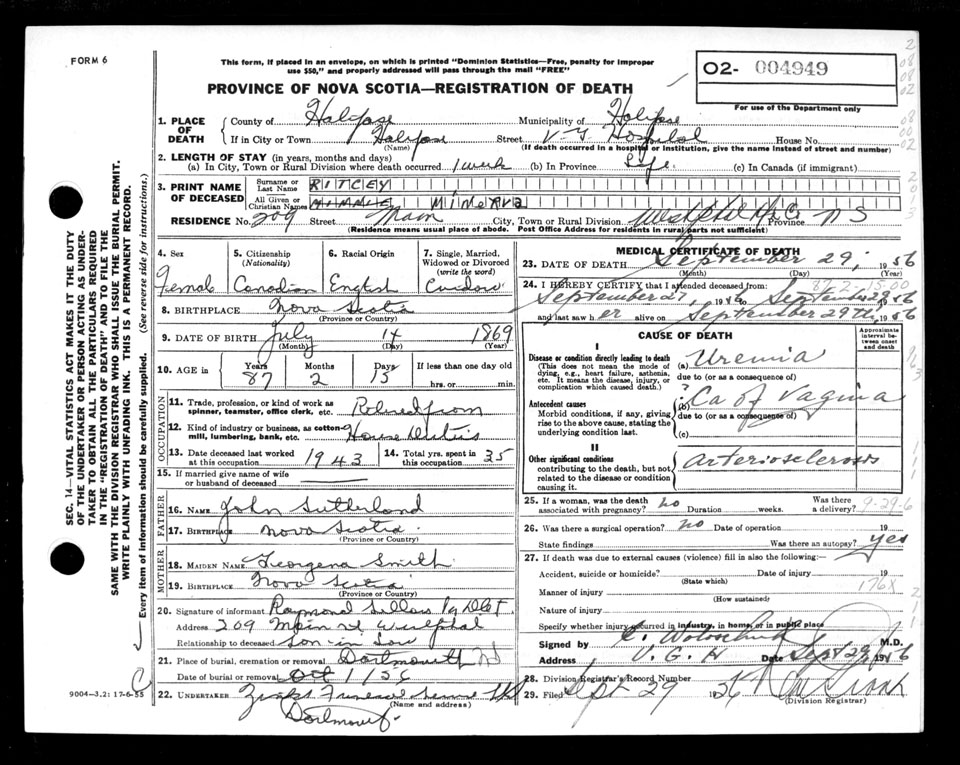 FORM 6
This form, if placed in an envelope, on which is printed "Dominion Statistics—Free, penalty for improper
use $50," and properly addressed will pass through the mail "FREE"
02- 004949
For use of the Department only
PROVINCE OF NOVA SCOTIA—REGISTRATION OF DEATH
1. PLACE OF DEATH
County of Halifax Municipality of Halifax
If in City or Town Halifax Street V. G. Hospital House No.
(Name) (If death occurred in a hospital or institution, give the name instead of street and number)
2. LENGTH OF STAY (in years, months and days)
(a) In City, Town or Rural Division where death occurred 1 week (b) In Province Life. (c) In Canada (if immigrant)
3. PRINT NAME OF DECEASED
Surname or Last Name RITCEY
All Given or Christian Names MINNIE MINERVA
RESIDENCE No. 209 Street Main City, Town or Rural Division Westphal Hx Co Province N S
(Residence means usual place of abode. Post Office Address for residents in rural parts not sufficient)
4. Sex
Female
5. Citizenship
(Nationality)
Canadian
6. Racial Origin
English
7. Single, Married,
Widowed or Divorced
(write the word)
Widow
8. BIRTHPLACE Nova Scotia
(Province or Country)
9. DATE OF BIRTH July 14 1869
(Month) (Day) (Year)
10. AGE in Years Months Days If less than one day old
87 2 15 hrs. or min.
OCCUPATION
11. Trade, profession, or kind of work as
spinner, teamster, office clerk, etc. Retired from
12. Kind of industry or business, as cotton-
mill, lumbering, bank, etc. House Duties
13. Date deceased last worked
at this occupation 1943
14. Total yrs. spent in
this occupation 35
15. If married give name of wife
or husband of deceased
FATHER
16. NAME John Sutherland
17. BIRTHPLACE Nova Scotia
(Province or Country)
MOTHER
18. MAIDEN NAME Georgena Smith
19. BIRTHPLACE Nova Scotia
(Province or Country)
20. Signature of informant Raymond
Address 209 Main St Westphal
Relationship to deceased Son in Law
21. Place of burial, cremation or removal Dartmouth NS
Date of burial or removal Oct 1/56
22. UNDERTAKER Funeral Service
(Name and address)
Dartmouth
9004—3.2: 17-6-55
SEC. 14—VITAL STATISTICS ACT MAKES IT THE DUTY
OF THE UNDERTAKER OR PERSON ACTING AS UNDER-
TAKER TO OBTAIN ALL THE PARTICULARS REQUIRED
IN THE "REGISTRATION OF DEATH" AND TO FILE THE
SAME WITH THE DIVISION REGISTRAR WHO SHALL ISSUE THE BURIAL PERMIT.
WRITE PLAINLY WITH UNFADING INK. THIS IS A PERMANENT RECORD.
Every item of information should be carefully supplied. (See reverse side for instructions.)
MEDICAL CERTIFICATE OF DEATH
23. DATE OF DEATH September 29, 1956
(Month) (Day) (Year)
24. I HEREBY CERTIFY that I attended deceased from:
September 27, 1956 to September 29 1956
and last saw her alive on September 29th, 1956
CAUSE OF DEATH
Approximate
interval between
onset
and death
I
Disease or condition directly leading to death
(This does not mean the mode of
dying, e.g., heart failure, asthenia,
etc. It means the disease, injury, or
complication which caused death.)
(a) Uremia
due to (or as a consequence of)
Antecedent causes
Morbid conditions, if any, giving
rise to the above cause, stating the
underlying condition last.
(b) ? Ca of Vagina
due to (or as a consequence of)
(c)
II
Other significant conditions
contributing to the death, but not
related to the disease or condition
causing it.
Arteriosclerosis
25. If a woman, was the death
associated with pregnancy? No Duration weeks. Was there
a delivery? 9-29-6
26. Was there a surgical operation? No Date of operation 19
State findings Was there an autopsy? Yes
27. If death was due to external causes (violence) fill in also the following:—
Accident, suicide or homicide? Date of injury 19
(State which)
Manner of injury 176X
(How sustained)
Nature of injury
Specify whether injury occurred in industry, in home, or in public place
Signed by M.D.
Address V. G. H Date Sept 29 1956
28. Division Registrar's Record Number
29. Filed Sept 29 1956
(Division Registrar)